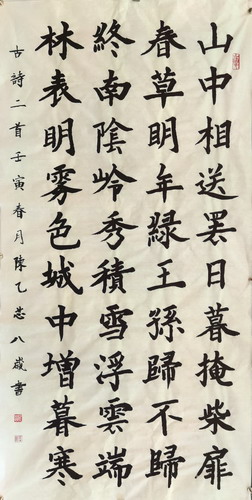 山中相送罢日暮掩柴扉
春草明年緑王孫歸不歸
終南陰岭秀積雪浮雲端
林表明霁色城中增暮寒
古詩二首壬寅春月陳乙芯八歲書